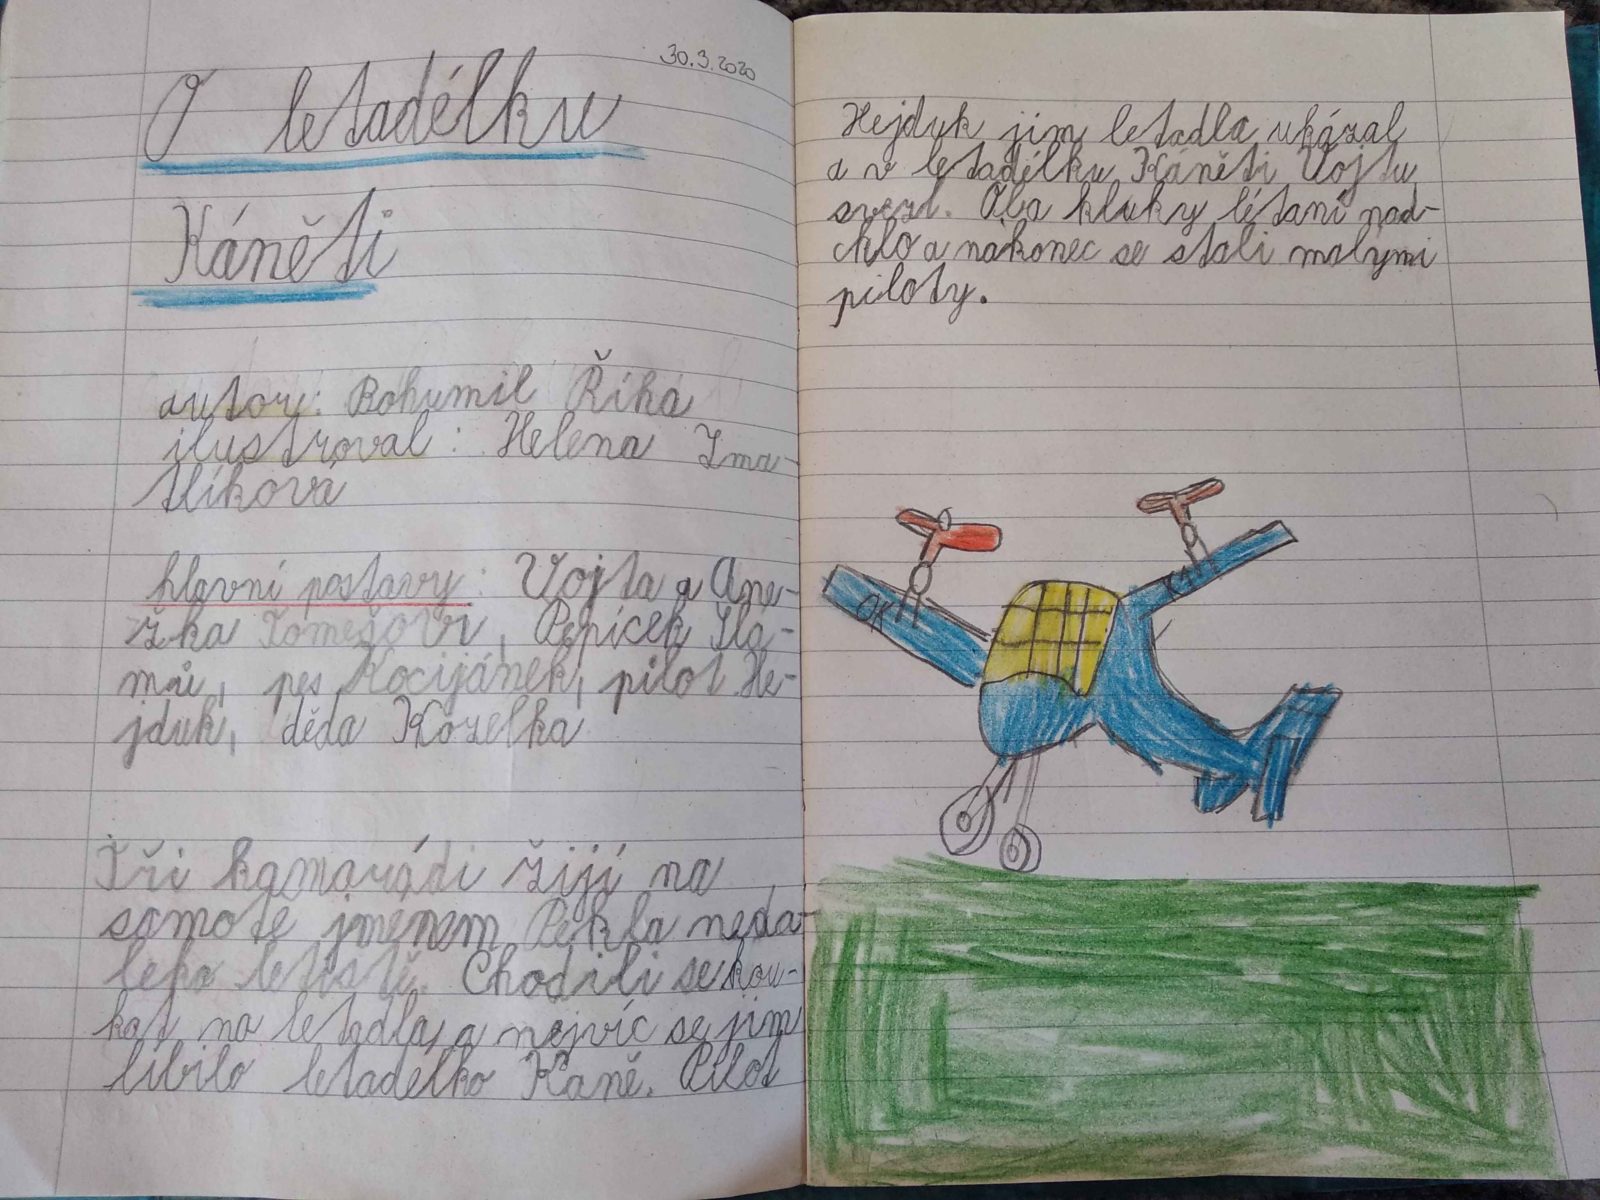 30.3.2020
O letadélku
Káněti
autor: Bohumil Říha
ilustroval: Helena Zma-
tlíková
hlavní postavy: Vojta a Ane-
žka Tomešovi, Pepíček Sla-
mů, pes Kocijánek, pilot He-
jduk, děda Kozelka
Tři kamarádi žijí na
samote jménem Pekla neda-
leko letiště. Chodili se kou-
kat na letadla a nejvíc se jim
líbilo letadélko Káně. Pilot
Hejduk jim letadla ukázal
a v letadélku Káněti Vojtu
svezl. Oba kluky létaní nad-
chlo a nakonec se stali malými
piloty.
OK